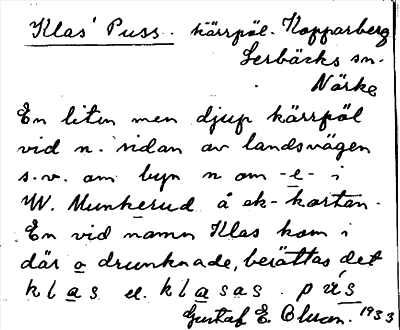 Klas' Puss. kärrpöl. Kopparberg
Lerbäcks sn.
Närke
En liten men djup kärrpöl
vid n. sidan av landsvägen
s.v. om byn n om -e- i
W. Munkerud å ek-kartan.
En vid namn Klas kom i
där o drunknade, berättas det
klas el. klasas. pus
Gustaf E. 1933